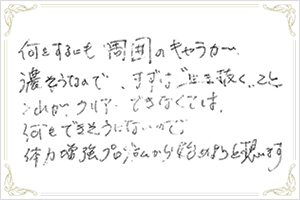 何をするにも 周囲のキャラが
濃そうなので、まずは“生き抜く”こと
これが クリアー できなくては、
何もできそうにないので
体力増強プログラムから始めようと思います